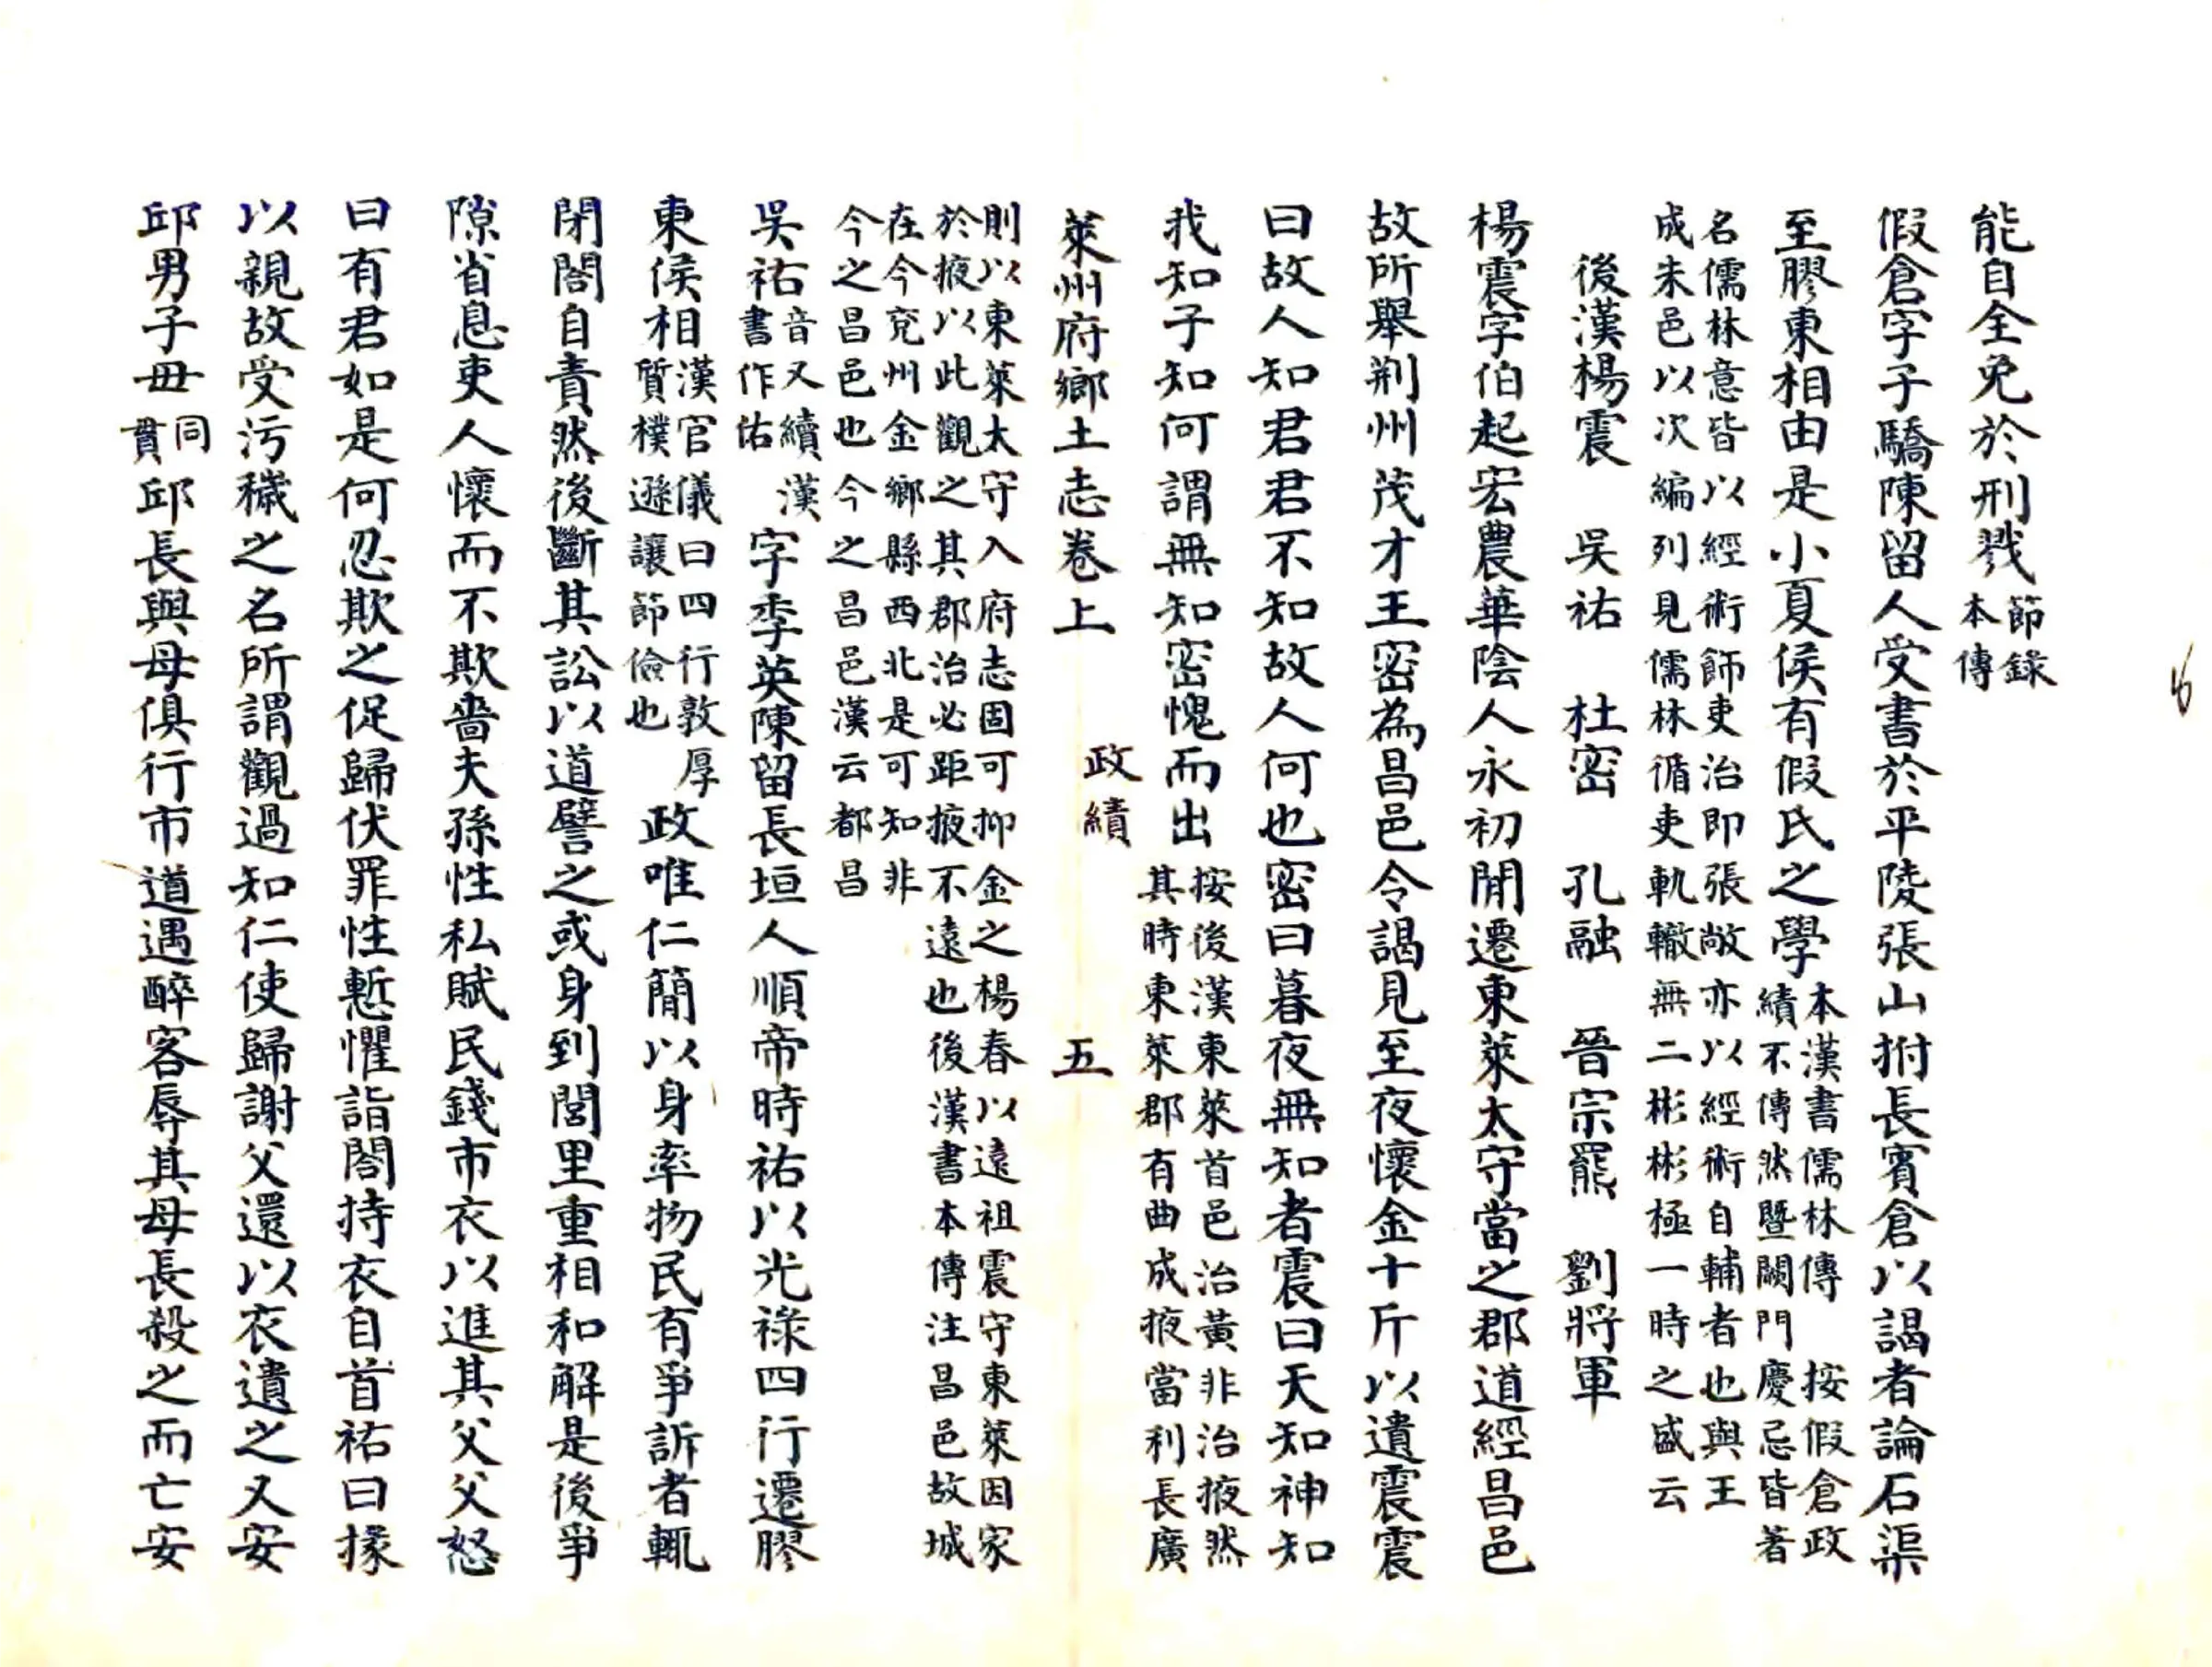 能自全免於刑戮節錄
本傳
假倉字子驕陳留人受書於平陵張山拊長賓倉以謁者論石渠
至膠東相由是小夏侯有假氏之學本漢書儒林傳 按假倉政
績不傳然暨闕門慶忌皆著
名儒林意皆以經術飾吏治即張敞亦以經術自輔者也與王
成朱邑以次編列見儒林循吏軌轍無二彬彬極一時之盛云
後漢楊震 吳祐 杜密 孔融 晉宗羆 劉將軍
楊震字伯起宏農華陰人永初閒遷東萊太守當之郡道經昌邑
故所舉荊州茂才王密為昌邑令謁見至夜懷金十斤以遺震震
曰故人知君君不知故人何也密曰暮夜無知者震曰天知神知
我知子知何謂無知密愧而出按後漢東萊首邑治黃非治掖然
其時東萊郡有曲成掖當利長廣
萊州府鄉土志卷上 政績 五
則以東萊太守入府志固可抑金之楊春以遠祖震守東萊因家
於掖以此觀之其郡治必距掖不遠也後漢書本傳注昌邑故城
在今兗州金鄉縣西北是可知非
今之昌邑也今之昌邑漢云都昌
吳祐音又續漢
書作佑
字季英陳留長垣人順帝時祐以光祿四行遷膠
東侯相漢官儀曰四行敦厚
質樸遜讓節儉也
政唯仁簡以身率物民有爭訴者輒
閉閤自責然後斷其訟以道譬之或身到閭里重相和解是後爭
隙省息吏人懷而不欺嗇夫孫性私賦民錢市衣以進其父父怒
曰有君如是何忍欺之促歸伏罪性慙懼詣閤持衣自首祐曰掾
以親故受污穢之名所謂觀過知仁使歸謝父還以衣遺之又安
邱男子毋同
貫
邱長與母俱行市道遇醉客辱其母長殺之而亡安